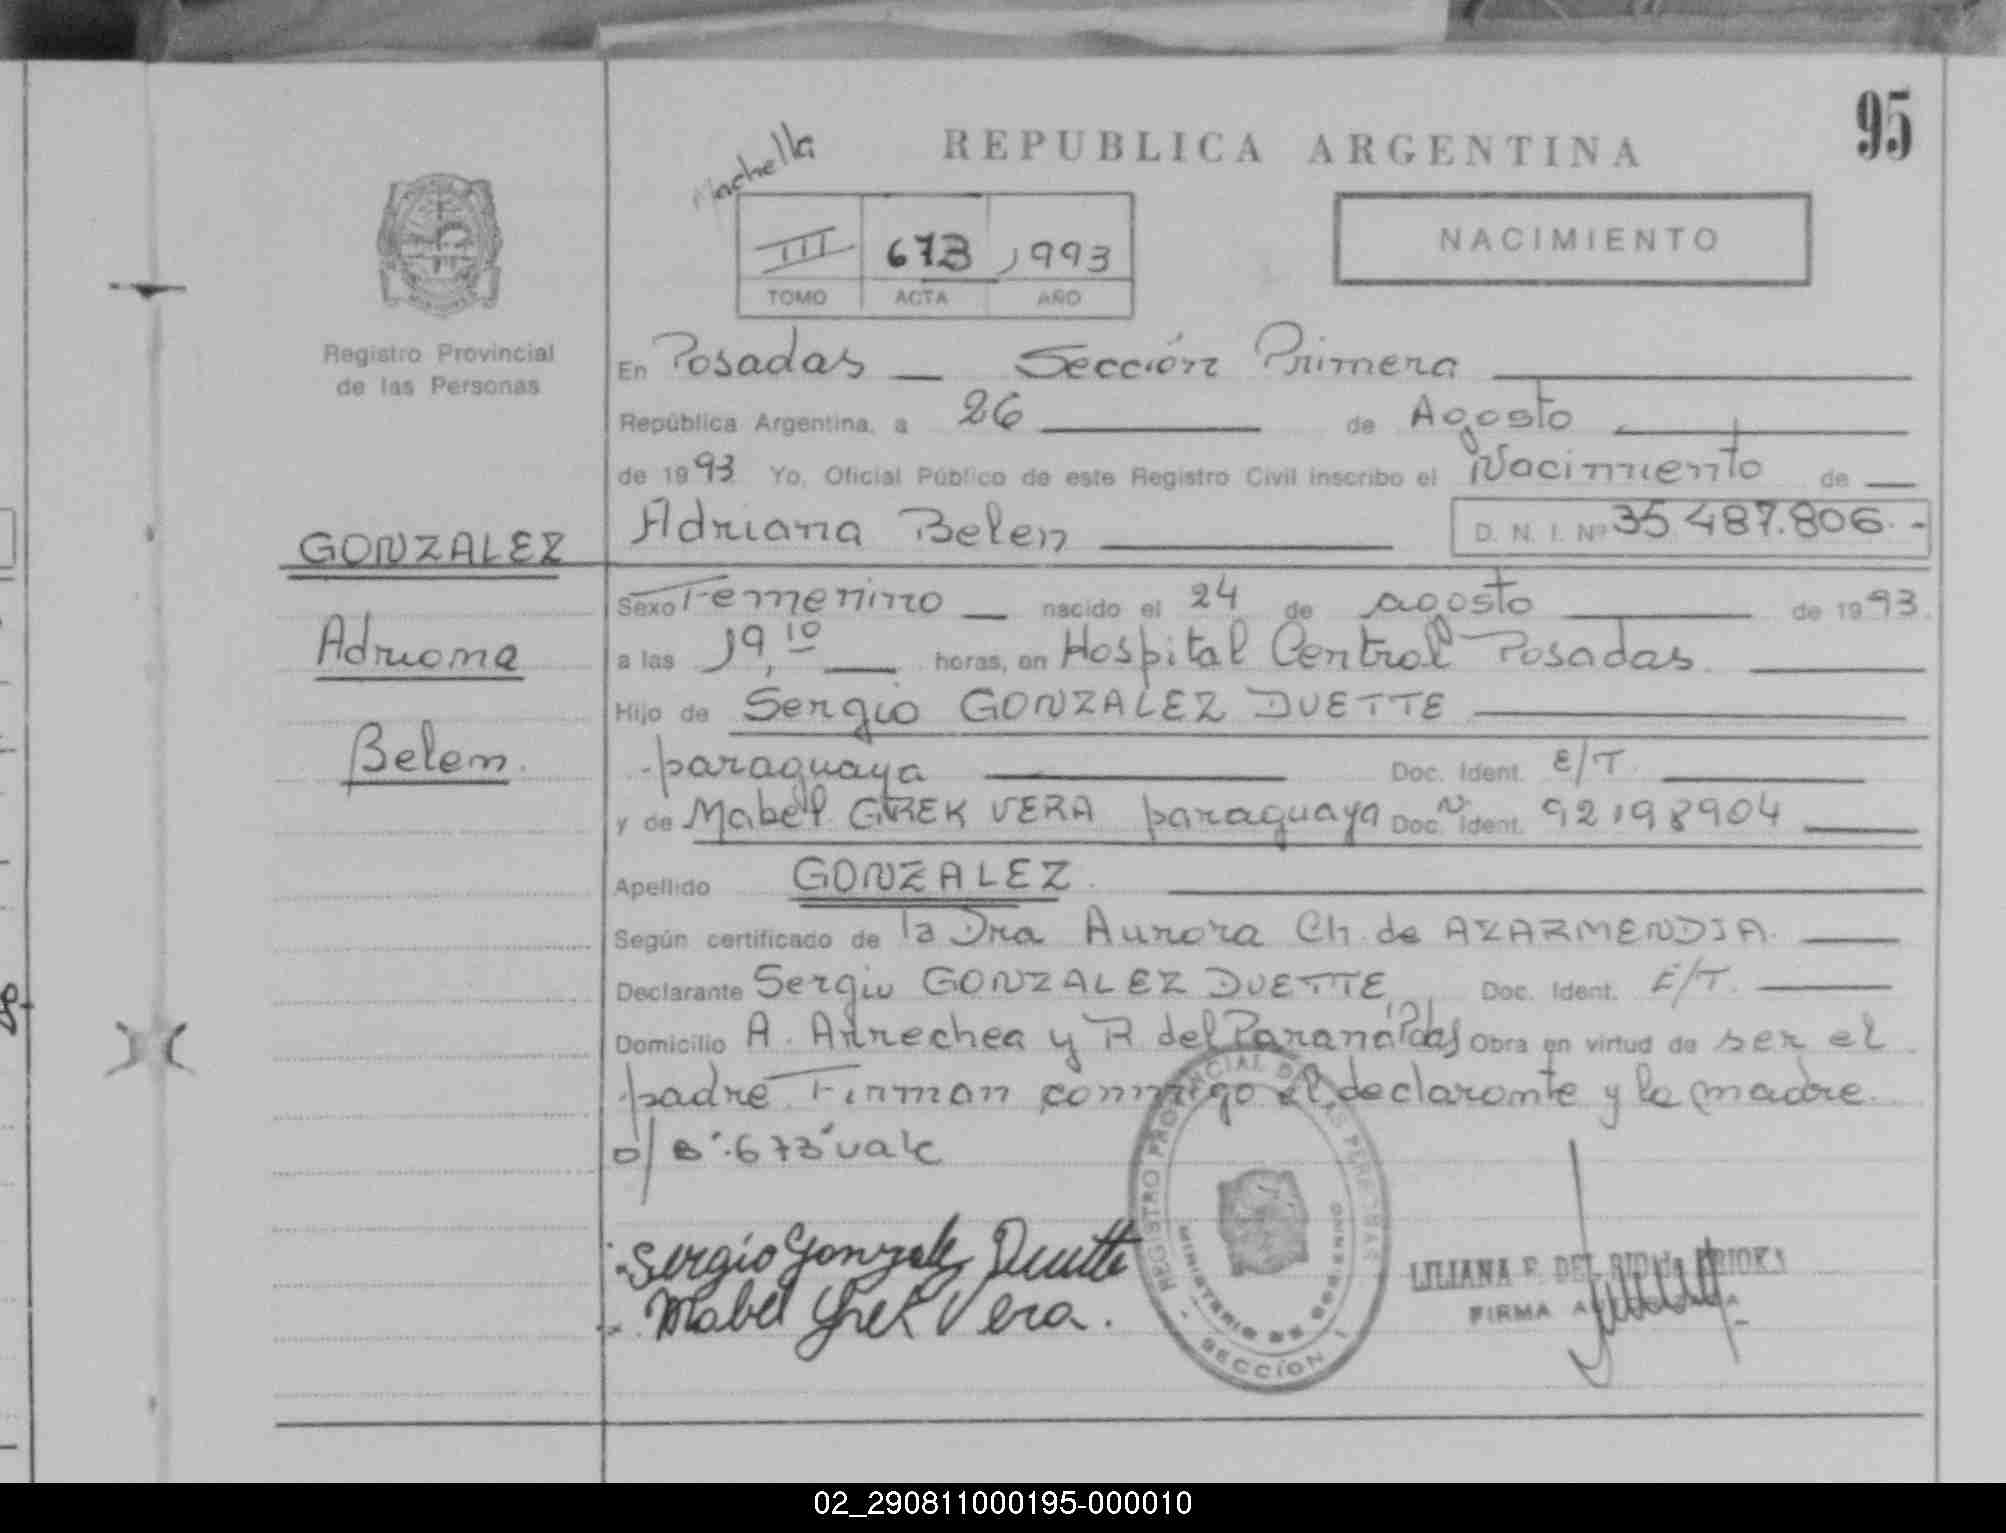 95
REPUBLICA ARGENTINA
NACIMIENTO
III 673 1993
TOMO ACTA AÑO
Registro Provincial
de las Personas
En Posadas — Sección Primera
República Argentina, a 26 de Agosto
de 1993 Yo, Oficial Público de este Registro Civil inscribo el Nacimiento de
GONZALEZ
Adriana
Belem.
Adriana Belen D. N. I. Nº 35.487.806.-
Sexo Femenino — nacido el 24 de agosto de 1993.
a las 19,10 horas, en Hospital Central Posadas.
Hijo de Sergio GONZALEZ DUETTE
paraguaya Doc. Ident. E/T.
y de Mabel GREK VERA paraguaya Doc. Ident. Nº 92198904
Apellido GONZALEZ.
Según certificado de la Dra Aurora Ch. de AZARMENDIA.
Declarante Sergio GONZALEZ DUETTE Doc. Ident. E/T.
Domicilio A. Arrechea y R. del Paraná Pdas Obra en virtud de ser el
padre. Firman conmigo el declarante y la madre.
673 vale
Sergio Gonzalez Duette
Mabel Grek Vera.
REGISTRO PROVINCIAL DE LAS PERSONAS
MINISTERIO DE GOBIERNO
- SECCION I -
LILIANA
FIRMA
02_290811000195-000010